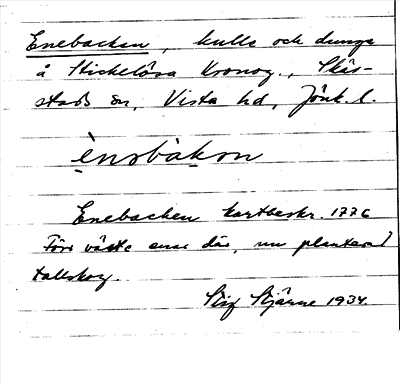 Enebacken, kulle och dunge
å Stickelösa Kronog., Skär-
stads sn, Vista hd, Jönk. l.
ènobàkon
Enebacken kartbeskr. 1776
Förr växte enar där, nu planterad
tallskog.
Stig Stjärne 1934.